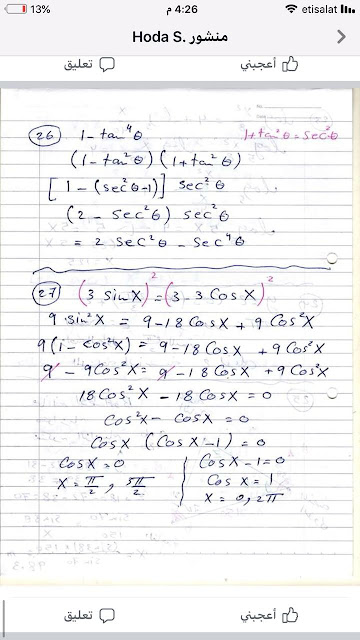 13% 4:26 م etisalat
منشور Hoda S.
تعليق أعجبني
26 1 - tan⁴θ 1 + tan²θ = sec²θ
(1 - tan²θ) (1 + tan²θ)
[1 - (sec²θ - 1)] sec²θ
(2 - sec²θ) sec²θ
= 2 sec²θ - sec⁴θ
27 (3 sin X)² = (3 - 3 Cos X)²
9 sin²X = 9 - 18 Cos X + 9 Cos²X
9(1 - cos²X) = 9 - 18 Cos X + 9 Cos²X
9 - 9 Cos²X = 9 - 18 Cos X + 9 Cos²X
18 Cos²X - 18 Cos X = 0
Cos²X - Cos X = 0
Cos X (Cos X - 1) = 0
Cos X = 0 Cos X - 1 = 0
X = π/2, 5π/2 Cos X = 1
X = 0, 2π
تعليق أعجبني